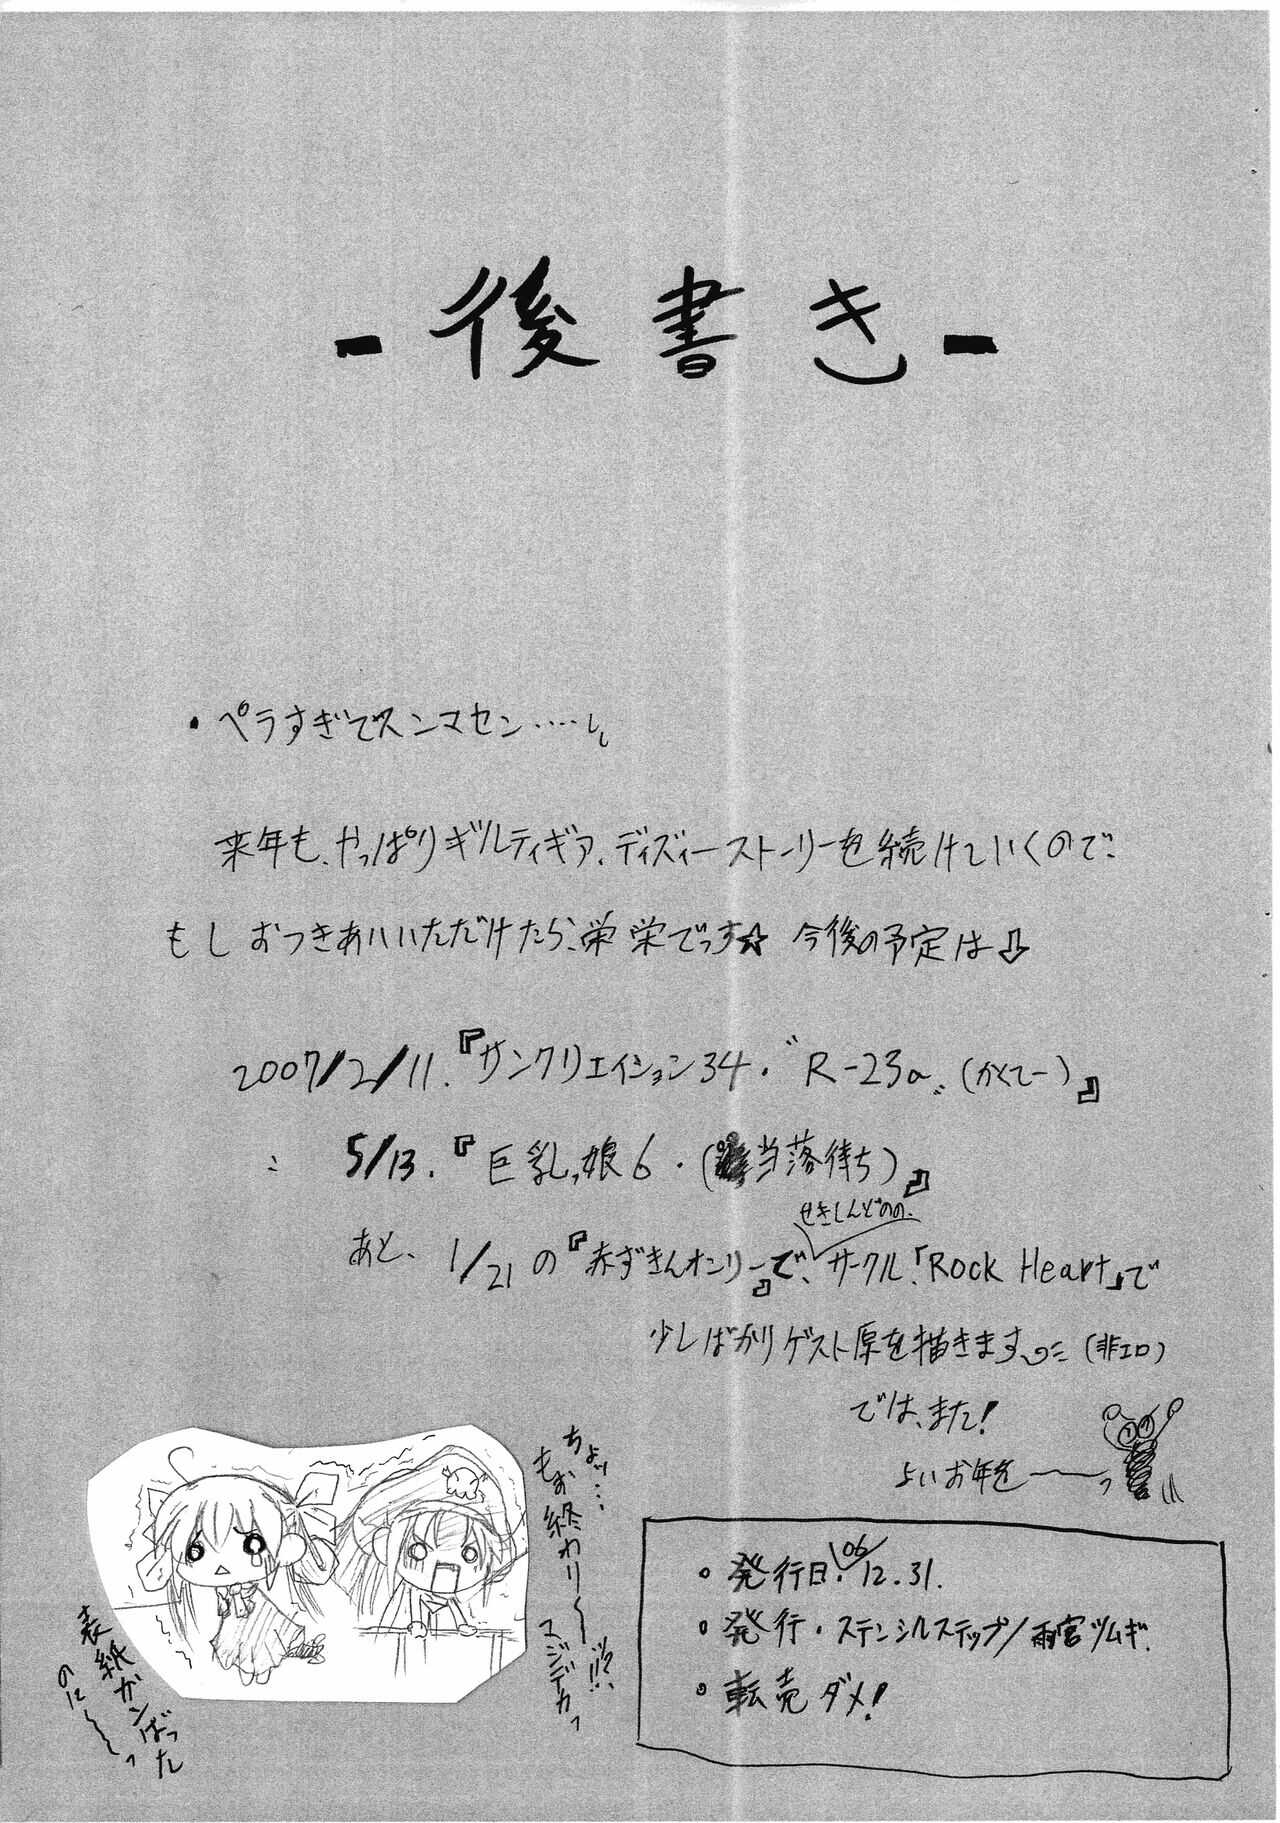 - 後書き -
・ペラすぎてスンマセン……
来年も、やっぱりギルティギア、ディズィーストーリーを続けていくので、
もしおつきあいいただけたら、栄栄でっす☆ 今後の予定は⇩
2007/2/11.『サンクリエイション34・〝R-23a〟(かくてー)』
〃 5/13.『巨乳っ娘6・(当落待ち)』
あと、1/21の『赤ずきんオンリー』で、せきしんどのの、サークル「Rock Heart」で
少しばかりゲスト原を描きます (非エロ)
では、また!
よいお年を――っ
ちょッ…もお終わり〜!!?、マジデカっ
表紙がんばったのに〜〜っ
・発行日・'06/12.31.
・発行・ステンシルステップ/雨宮ツムギ.
・転売ダメ!